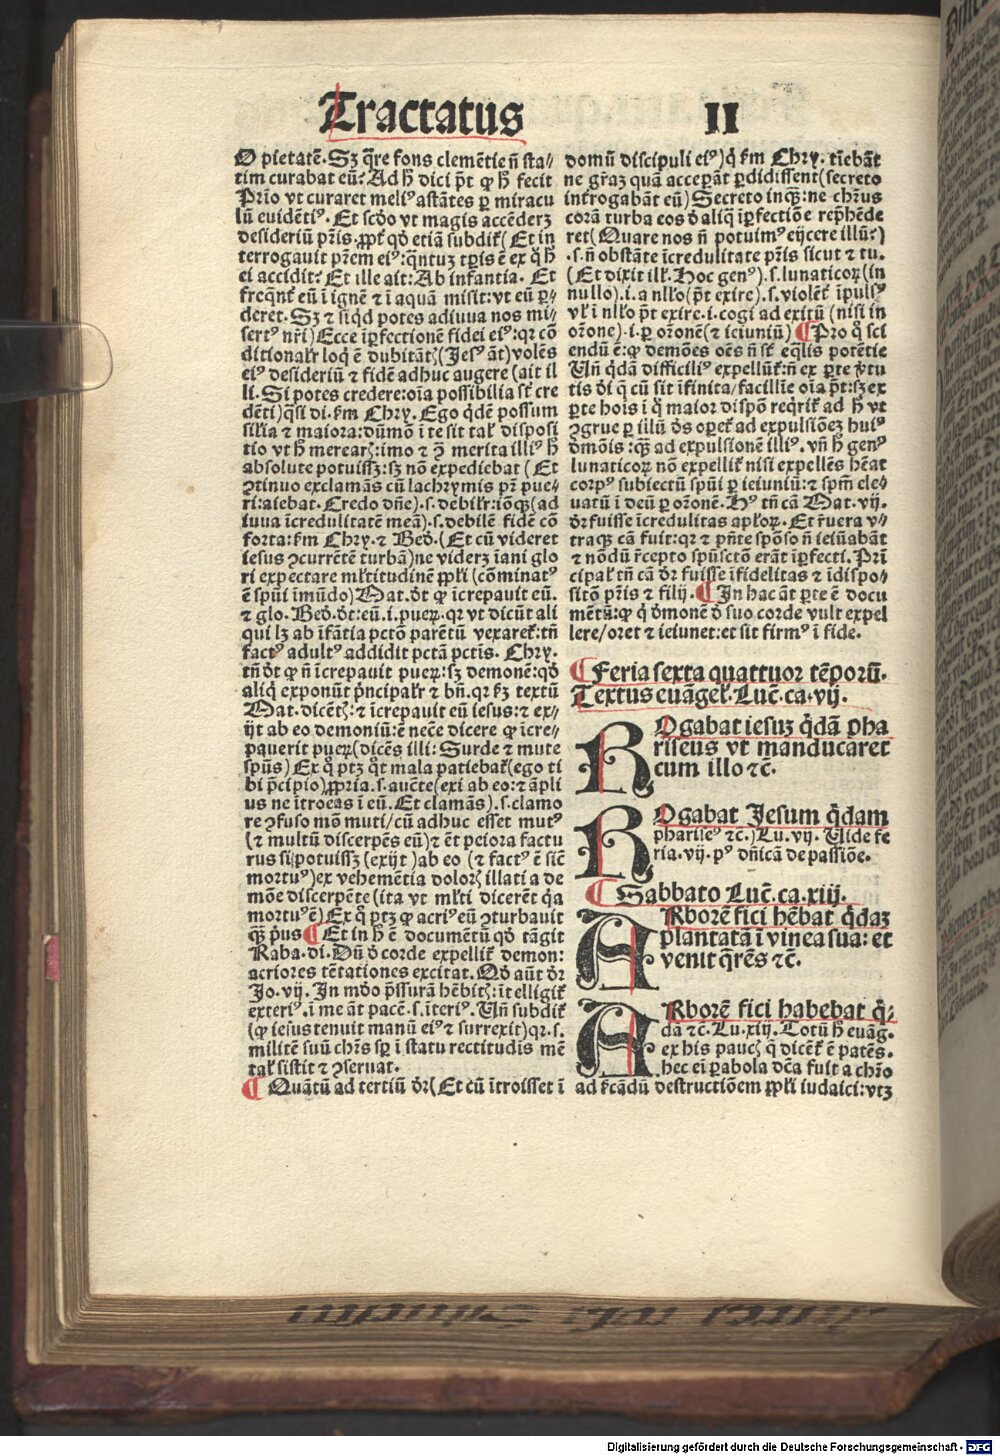 Tractatus II
O pietatē. Sꝫ q̄re fons clemētie n̄ sta/
tim curabat eū? Ad h̄ dici pōt ꝙ h̄ fecit
Prīo vt curaret meliꝰ astātes ꝑ miracu
lū euidētiꝰ. Et scd̄o vt magis accēderꝫ
desideriū pr̄is. ꝓpt̄ qd̄ etiā subdit̄ (Et in
terrogauit pr̄em eiꝰ: q̄ntuꝫ tp̄is ē ex q̄ h̄
ei accidit? Et ille ait: Ab infantia. Et
freq̄nt̄ eū ī ignē ⁊ ī aquā misit: vt eū ꝑ-
deret. Sꝫ ⁊ siqd̄ potes adiuua nos mi/
sertꝰ nr̄i) Ecce īꝑfectionē fidei eiꝰ: qꝛ cō
ditionalr̄ loq̄ ē dubitātꝭ (Jesꝰ āt) volēs
eiꝰ desideriū ⁊ fidē adhuc augere (ait il
li. Si potes credere: oīa possibilia st̄ cre
dēti) q̄si di. ẜm Chry. Ego q̄dē possum
sil̄ia ⁊ maiora: dūmō ī te sit tal̄ disposi
tio vt h̄ merearꝭ: imo ⁊ ꝓ merita illiꝰ h̄
absolute potuissꝫ: sꝫ nō expediebat (Et
ꝯtinuo exclamās cū lachrymis pr̄ pue-
ri: aiebat. Credo dn̄e). s. debilr̄: iō q̄ꝫ (ad
iuua īcredulitatē meā). s. debilē fidē cō
forta: ẜm Chry. ⁊ Bed̄. (Et cū videret
iesus ꝯcurrētē turbā) ne viderꝫ īani glo
ri expectare ml̄titudinē ꝓpl̄i (cōminatꝰ
ē spūi īmūdo) Mat. dt̄ ꝙ īcrepauit eū.
⁊ glo. Bed̄. dt̄: eū. i. pueꝝ. qꝛ vt dicūt ali
qui lꝫ ab īfātia pctō parētū vexaret̄: tn̄
factꝰ adultꝰ addidit pctā pctīs. Chry.
tn̄ dt̄ ꝙ n̄ īcrepauit pueꝝ: sꝫ demonē: qd̄
aliq̄ exponūt pͥncipalr̄ ⁊ bn̄. qꝛ ẜꝫ textū
Mat. dicētꝭ: ⁊ īcrepauit eū iesus: ⁊ ex/
ijt ab eo demoniū: ē nec̄e dicere ꝙ īcre/
pauerit pueꝝ (dicēs illi: Surde ⁊ mute
spūs) Ex q̄ ptꝫ qt̄ mala patiebat̄ (ego ti
bi p̄cipio) ꝓpria. s. auc̄te (exi ab eo: ⁊ āpli
us ne ītroeas ī eū. Et clamās). s. clamo
re ꝯfuso mō muti/ cū adhuc esset mutꝰ
(⁊ multū discerpēs eū) ⁊ ēt peiora factu
rus si potuissꝫ (exijt) ab eo (⁊ factꝰ ē sic̄
mortuꝰ) ex vehemētia dolorꝭ illati a de
mōe discerpēte (ita vt ml̄ti dicerēt q̄a
mortuꝰ ē) Ex q̄ ptꝫ ꝙ acriꝰ eū ꝯturbauit
q̄ꝫ pͥus ¶ Et in h̄ ē documētū qd̄ tāgit
Raba. di. Dū d̄ corde expellit̄ demon:
acriores tētationes excitat. Qd̄ aūt dr̄
Jo. vij. In mdō p̄ssurā hēbitꝭ: īt elligit̄
exteriꝰ. ī me āt pacē. s. īteriꝰ. Vn̄ subdit̄
(ꝙ iesus tenuit manū eiꝰ ⁊ surrexit) qꝛ. s.
militē suū chr̄s sꝑ ī statu rectitudis mē
tal̄ sistit ⁊ ꝯseruat.
¶ Quātū ad tertiū dr̄ (Et cū ītroisset ī
domū discipuli eiꝰ) q̄ ẜm Chry. tīebāt
ne gr̄aꝫ quā acceꝑāt ꝑdidissent (secreto
introgabāt eū) Secreto inq̄ꝫ: ne chr̄us
corā turba eos d̄ aliq̄ īꝑfectiōe rep̄hēde
ret (Quare nos n̄ potuimꝰ eijcere illū?)
. s. n̄ obstāte īcredulitate pr̄is sicut ⁊ tu.
(Et dixit ill̄. Hoc genꝰ). s. lunaticoꝝ (in
nullo). i. a nll̄o (pōt exire). s. violēt̄ īpulsꝰ
vl̄ ī nll̄o pōt exire. i. cogi ad exitū (nisi in
or̄one). i. ꝑ or̄onē (⁊ ieiuniū) ¶ Pro q̄ sci
endū ē: ꝙ demōes oēs n̄ st̄ eq̄lis potētie
Vn̄ q̄dā difficiliꝰ expellūt̄: n̄ ex ꝑte v̄tu
tis di q̄ cū sit īfinita/ facillīe oīa pn̄t: sꝫ ex
ꝑte hoīs ī q̄ maior dispō reqͥrit̄ ad h̄ vt
ꝯgrue ꝑ illū d̄s oꝑet̄ ad expulsiōeꝫ huiꝰ
dmōis: q̄ꝫ ad expulsionē illiꝰ. vn̄ h̄ genꝰ
lunaticoꝝ nō expellit̄ nisi expellēs hēat
corpꝰ subiectū spūi ꝑ ieiuniū: ⁊ spm̄ ele/
uatū ī deū ꝑ or̄onē. Hꝰ tn̄ cā Mat. vij.
dr̄ fuisse īcredulitas apl̄oꝝ. Et r̄uera v/
traq̄ꝫ cā fuit: qꝛ ⁊ pn̄te spōso n̄ ieiūabāt
⁊ nōdū r̄cepto spūsctō erāt īꝑfecti. Prī
cipal̄ tn̄ cā dr̄ fuisse īfidelitas ⁊ īdispo/
sitō pr̄is ⁊ filij. ¶ In hac āt ꝑte ē docu
mētū: ꝙ q̄ dmonē d̄ suo corde vult expel
lere/ oret ⁊ ieiunet: et sit firmꝰ ī fide.
¶ Feria sexta quattuor tēporū.
Textus euāgel̄. Luc̄. ca. vij.
ROgabat iesuꝫ q̄dā pha
riseus vt manducaret
cum illo ⁊c̄.
ROgabat Jesum q̄dam
phariseꝰ ⁊c̄.) Lu. vij. Vide fe
ria. vij. pꝰ dn̄icā de passiōe.
¶ Sabbato Luc̄. ca. xiij.
ARborē fici hēbat q̄daꝫ
plantatā ī vinea sua: et
venit q̄rēs ⁊c̄.
ARborē fici habebat q̄/
dā ⁊c̄. Lu. xiij. Totū h̄ euāg.
ex his paucꝭ q̄ dicēt̄ ē patēs.
hec ei ꝑabola dc̄a fuit a chr̄o
ad ẜcādū destructiōem ꝓpl̄i iudaici: vtꝫ
Digitalisierung gefördert durch die Deutsche Forschungsgemeinschaft - DFG